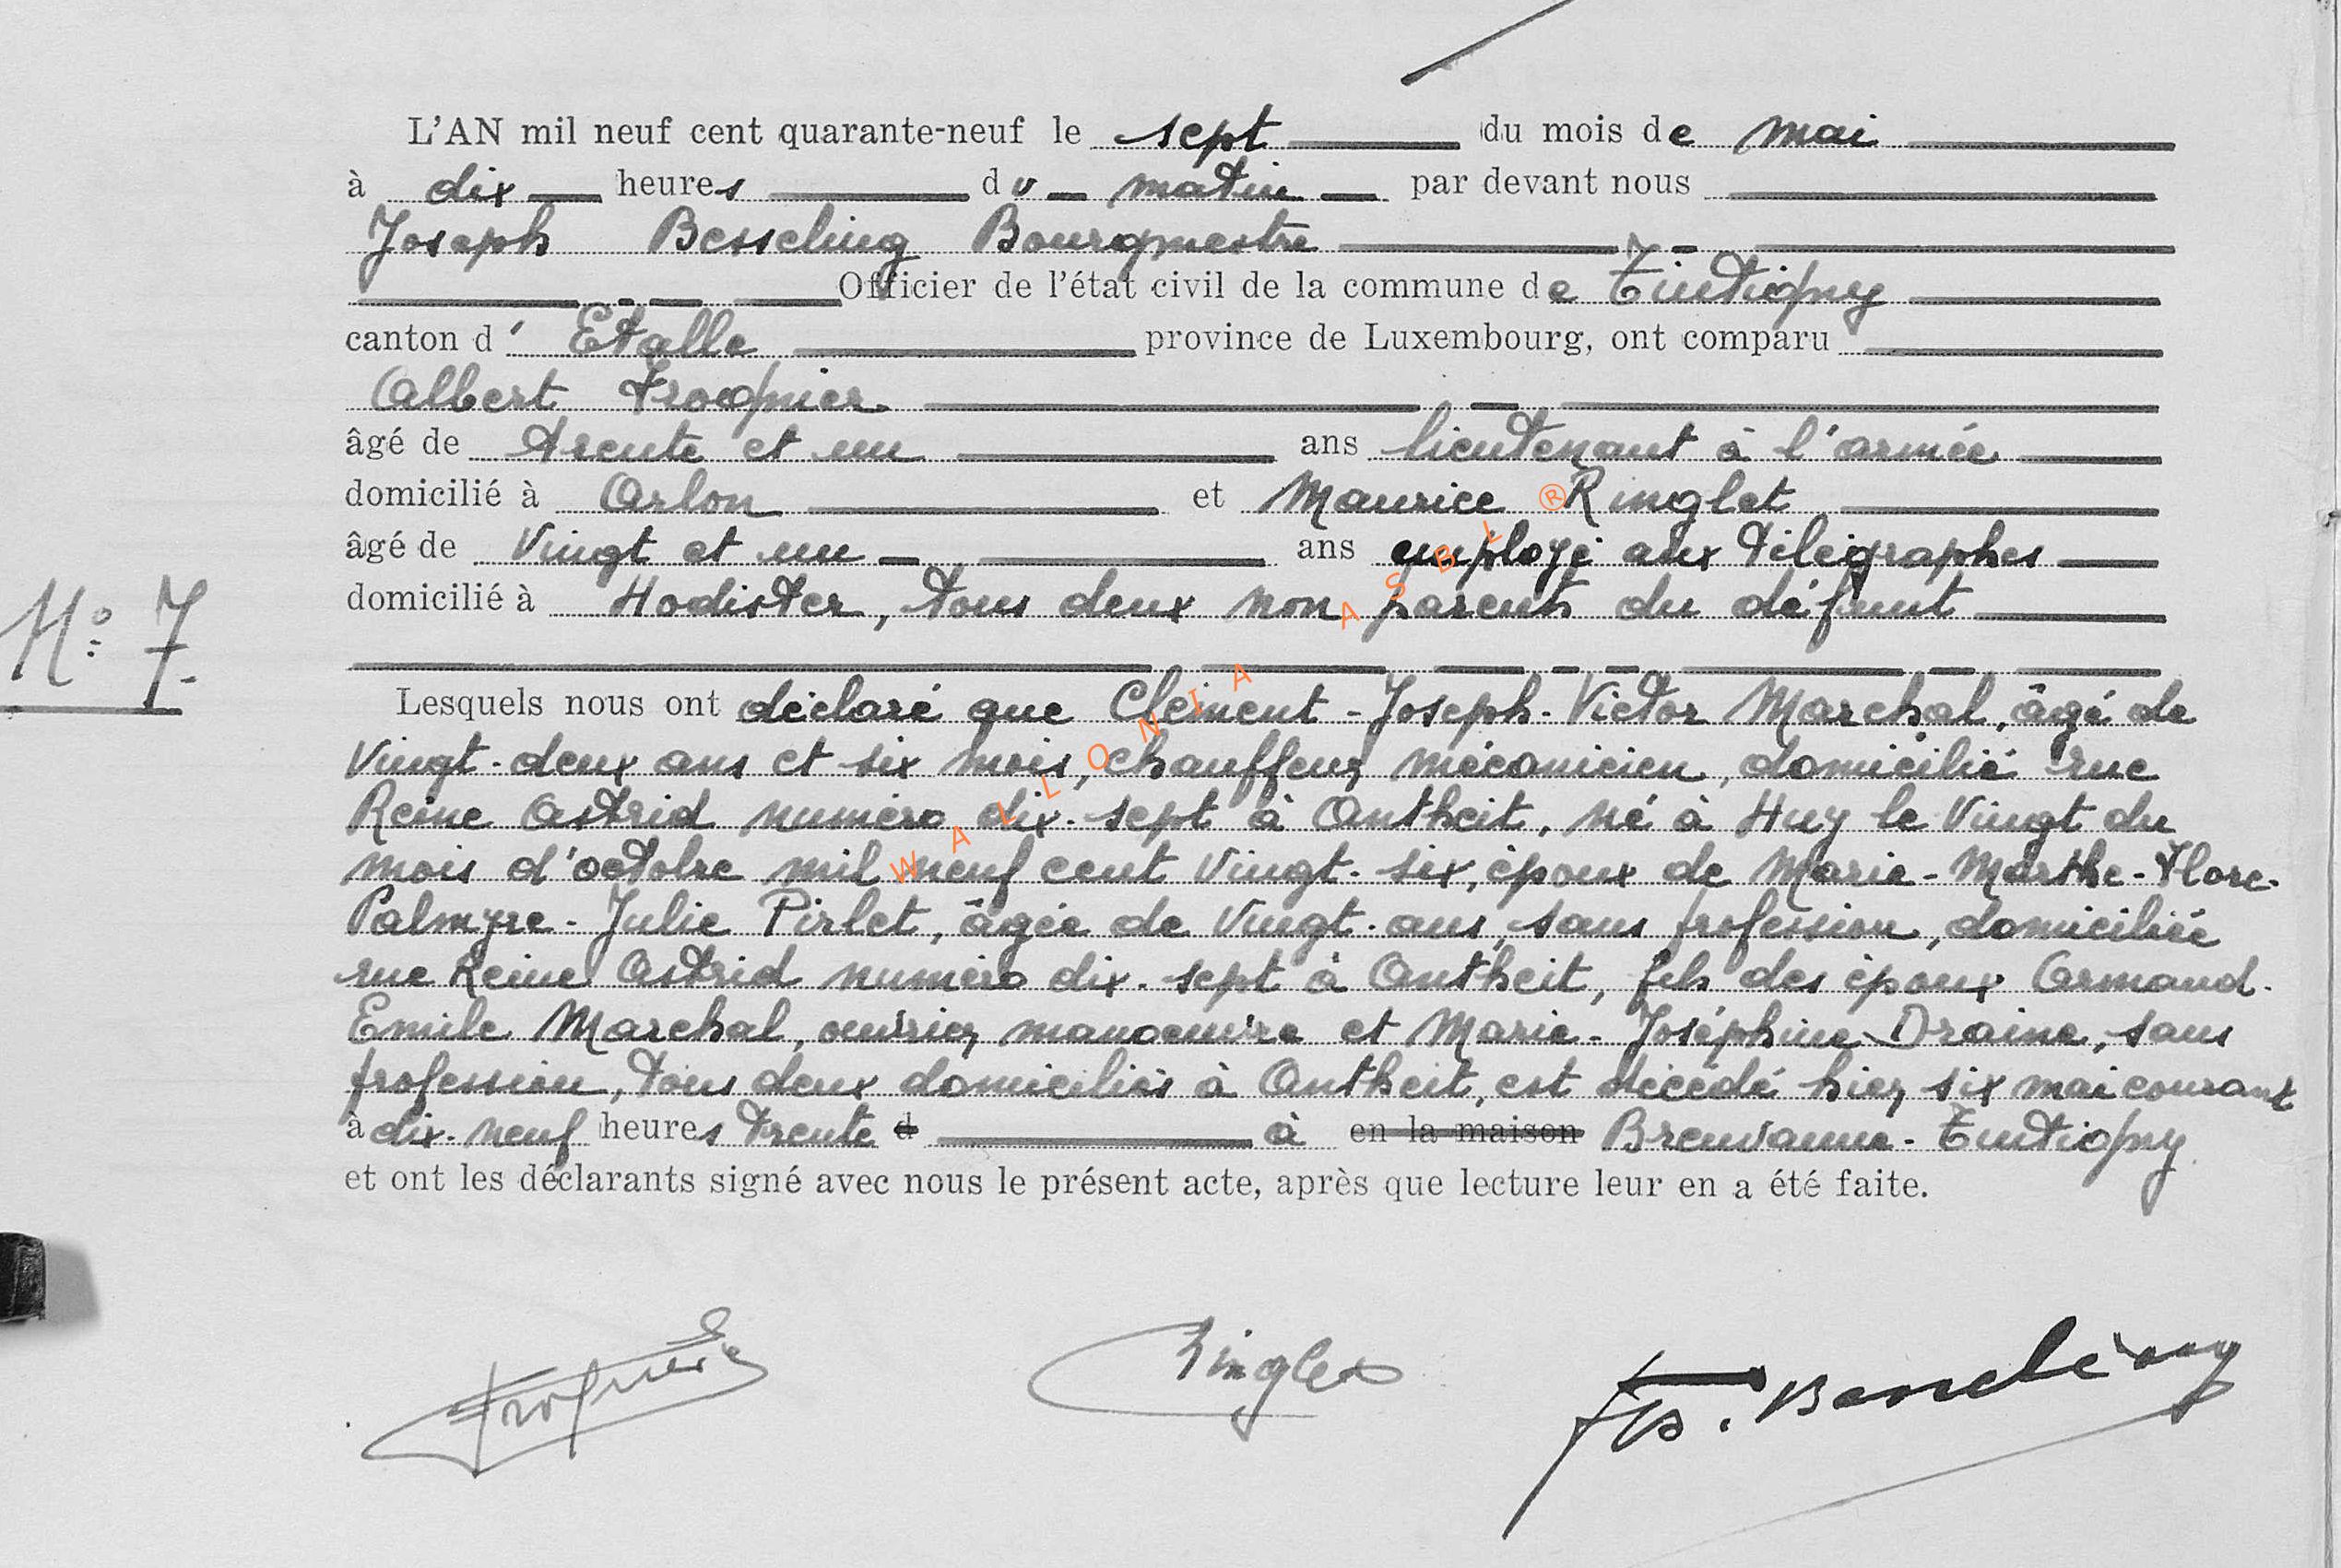 L'AN mil neuf cent quarante-neuf le sept du mois de mai
à dix heures du matin par devant nous
Joseph Besseling Bourgmestre
Officier de l'état civil de la commune de Tintigny
canton d' Etalle province de Luxembourg, ont comparu
Albert Frognier
âgé de trente et un ans lieutenant à l'armée
domicilié à Arlon et Maurice Ringlet
âgé de vingt et un ans employé aux télégraphes
domicilié à Hodister, tous deux non parents du défunt
N° 7.
Lesquels nous ont déclaré que Clément-Joseph-Victor Marchal, âgé de
vingt-deux ans et six mois, chauffeur mécanicien, domicilié rue
Reine Astrid numéro dix-sept à Antheit, né à Huy le vingt du
mois d'octobre mil neuf cent vingt-six, époux de Marie-Marthe-Flore-
Palmyre-Julie Pirlet, âgée de vingt-ans, sans profession, domiciliée
rue Reine Astrid numéro dix-sept à Antheit, fils des époux Armand-
Emile Marchal, ouvrier manoeuvre et Marie-Joséphine Draine, sans
profession, tous deux domiciliés à Antheit, est décédé hier, six mai courant
à dix-neuf heures trente d à en la maison Breuvanne-Tintigny
et ont les déclarants signé avec nous le présent acte, après que lecture leur en a été faite.
Frognier Ringlet
WALLONIA ASBL ®